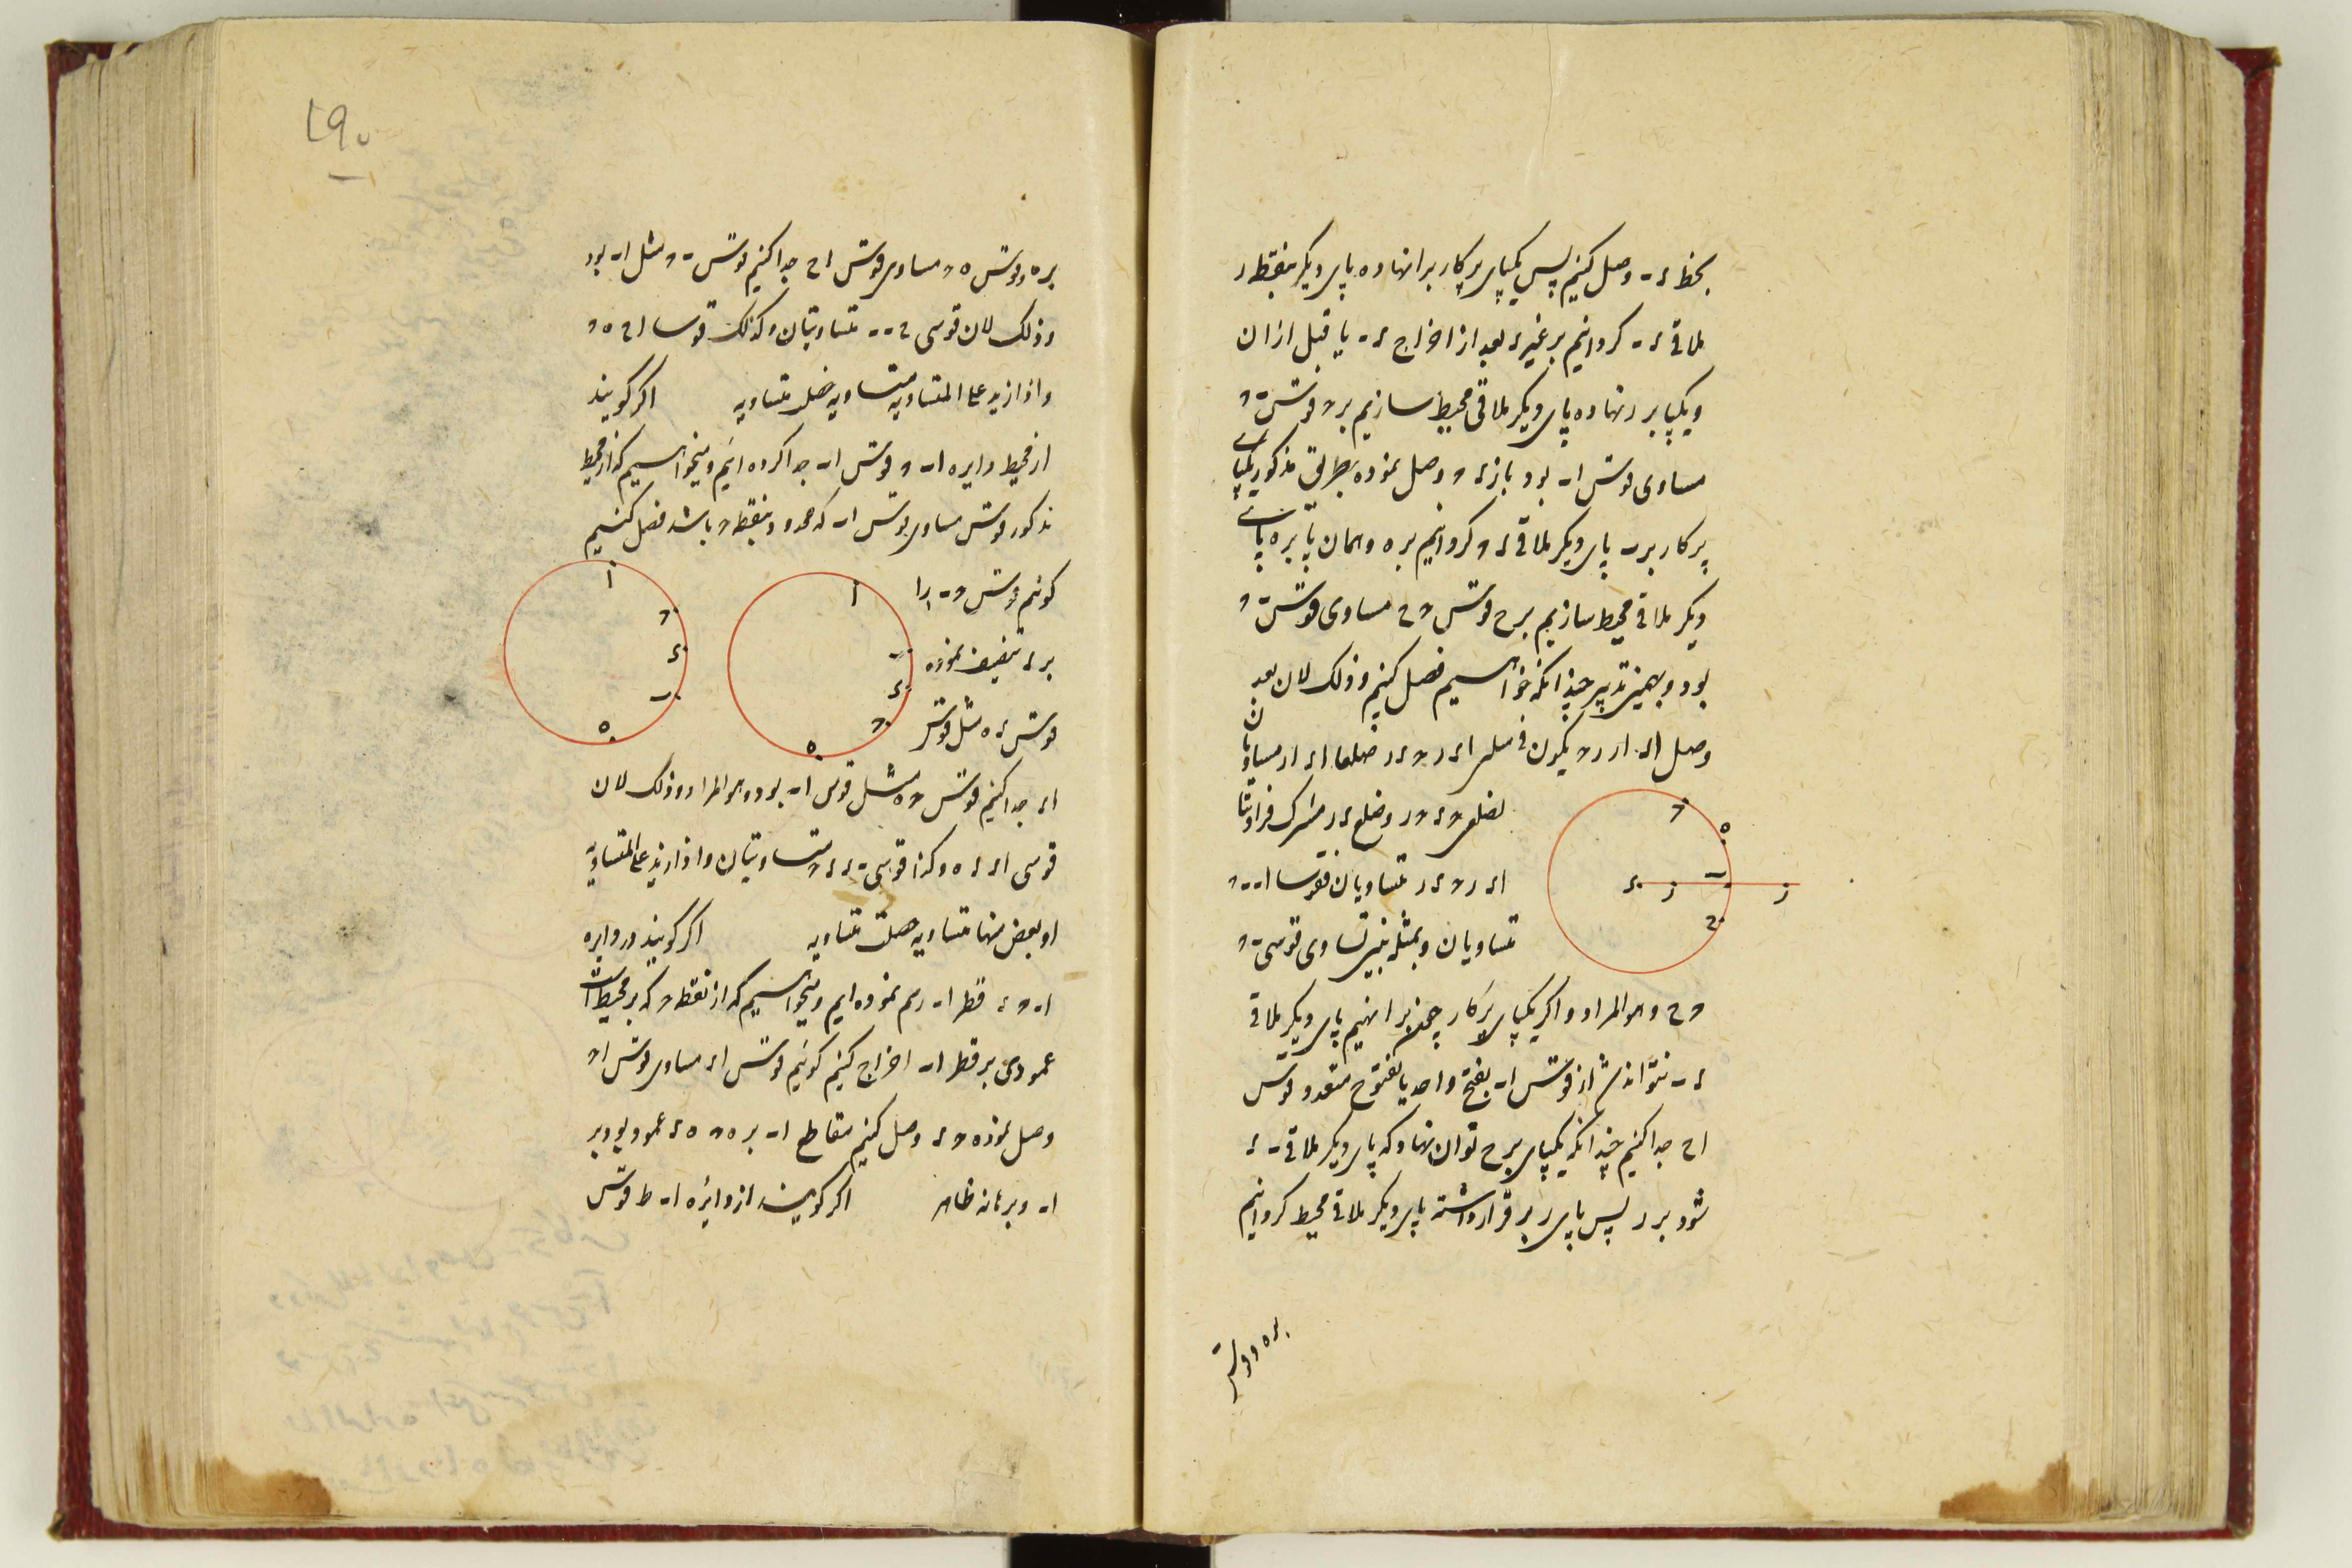 بخط ء ب وصل کنیم پس یکپای پرکار بر ا نهاده پای دیگر بنقطه ر
ملاقی ء ب کردانیم بر غیر ء بعد از اخراج ء ب یا قبل از ان
و یکپا بر ر نهاده پای دیکر ملاقی محیط سازیم بر د قوس ب د
مساوی قوس ا ب بود باز ء د وصل نموده بطریق مذکور یکپای
پرکار بر ب پای دیکر ملاقی ء د کردانیم بر ه و همان پا بر ه پای
دیکر ملاقی محیط سازیم بر ح قوس د ح مساوی قوس ب د
بود و بهمین تدبیر چندانکه خواهیم فصل کنیم و ذلک لان بعد
وصل ا ء ا ر ر د یکون فی مثلثی ا ء ر د ء ر ضلعا ا ء ا ر مساویان
لضلعی د ء د ر و ضلع ء ر مشترک فزاویتا
ا ء ر د ء ر متساویان فقوسا ا ب ب د
متساویان و بمثله نبین تساوی قوسی ب د
د ح و هو المراد و اکر یکپای پرکار چون بر ا نهیم پای دیکر ملاقی
ء ب نتواند شد از قوس ا ب بفتح واحد یا بفتوح متعدد قوس
ا ح جدا کنیم چندانکه یکپای بر ح توان نهاد که پای دیکر ملاقی ب ء
شود بر ر پس پای ر برقرار داشته پای دیکر ملاقی محیط کردانیم
بر ه و قوس
د
ه
ب
ء
ر
ر
ح
۲۹۰
بر ه و قوس ه د مساوی قوس ا ح جدا کنیم قوس ب د مثل ا ب بود
و ذلک لان قوسی ح ب ب ه متساویتان و کذلک قوسا ا ح ه د
و اذا زید علی المتساویه متساویه حصل متساویه اکر کویند
از محیط دایره ا ب د قوس ا ب جدا کرده ایم و میخواهیم که از محیط
مذکور قوس مساوی قوس ا ب که محدود بنقطه د باشد فصل کنیم
کوئیم قوس د ب را
بر ء تنصیف نموده
قوس ء ه مثل قوس
ا ء جدا کنیم قوس د ه مثل قوس ا ب بود و هو المراد و ذلک لان
قوسی ا ء ء ه و کذا قوسی ب ء ء د متساویتان و اذا زید علی المتساویه
او نقص منها متساویه حصلت متساویه اکر کویند در دایره
ا ب د ء قطر ا ب رسم نموده ایم و میخواهیم که از نقطه د که بر محیط است
عمودی بر قطر ا ب اخراج کنیم کوئیم قوس ا ء مساوی قوس ا د
فصل نموده د ء وصل کنیم مقاطع ا ب بر ه د ه ء عمود بود بر
ا ب و برهانه ظاهر اکر کویند از دایره ا ب ط قوس
ا
ب
ء
د
ه
ا
د
ء
ب
ه